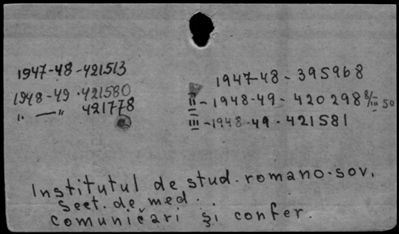 1947-48-421513
1948-49-421580
" — " 421778
1947-48-395968
II-1948-49-420298 8/III 50
III-1948-49-421581
Institutul de stud. romano-sov.
Sect. de med..
Comunicări și confer.